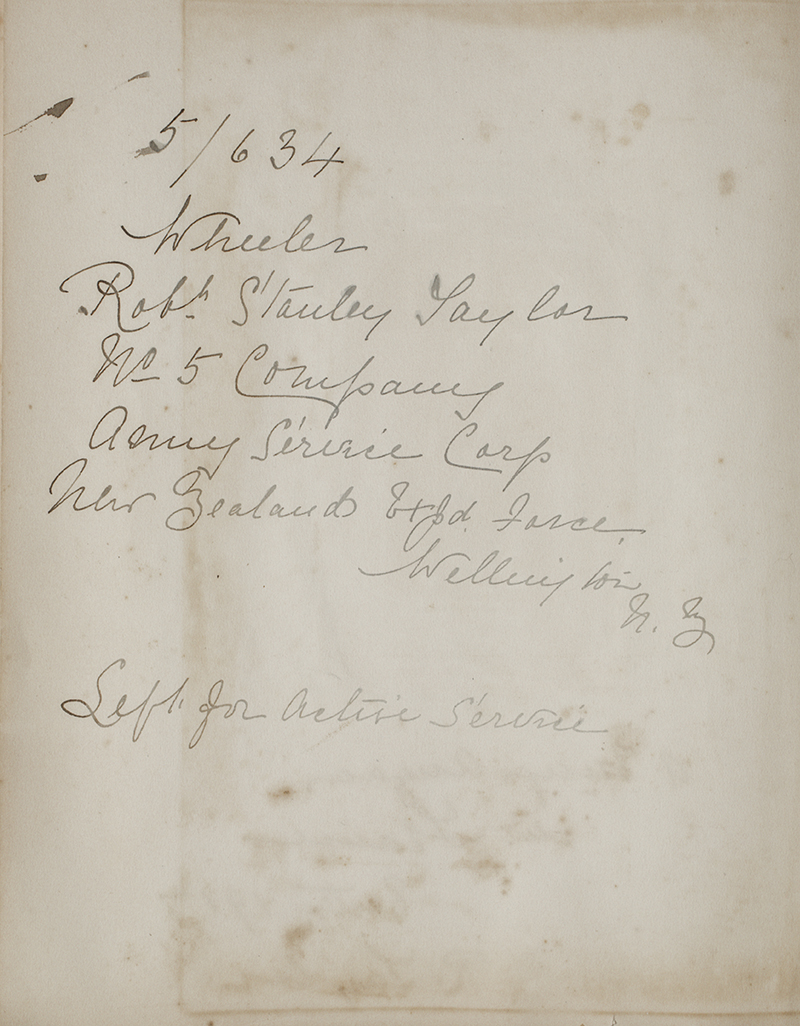 5/634
Wheeler
Robt. Stanley Taylor
No 5 Company
Army Service Corp
New Zealand Expd. Force.
Wellington
N. Z
Left for Active Service